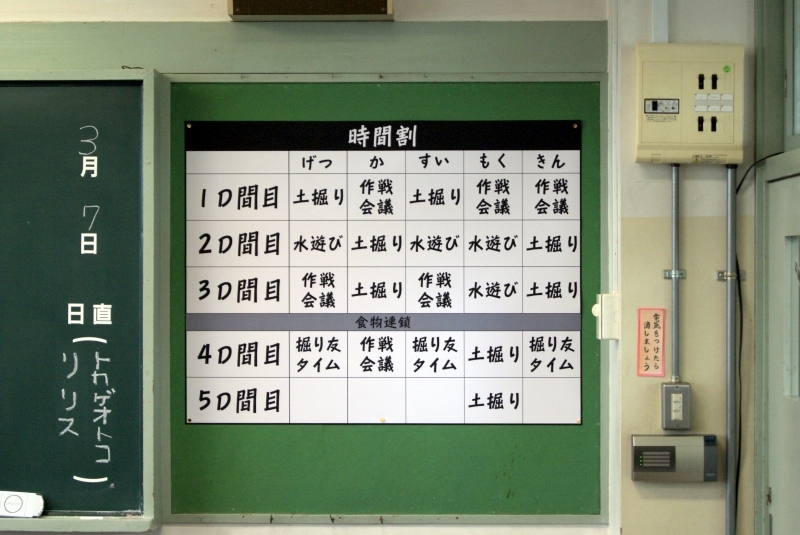 3月7日
日直(トカゲオトコ
リリス)
時間割
げつ か すい もく きん
1D間目 土掘り 作戦会議 土掘り 作戦会議 作戦会議
2D間目 水遊び 土掘り 水遊び 水遊び 土掘り
3D間目 作戦会議 土掘り 作戦会議 水遊び 土掘り
食物連鎖
4D間目 掘り友タイム 作戦会議 掘り友タイム 土掘り 掘り友タイム
5D間目 土掘り
電気をつけたら
消しましょう